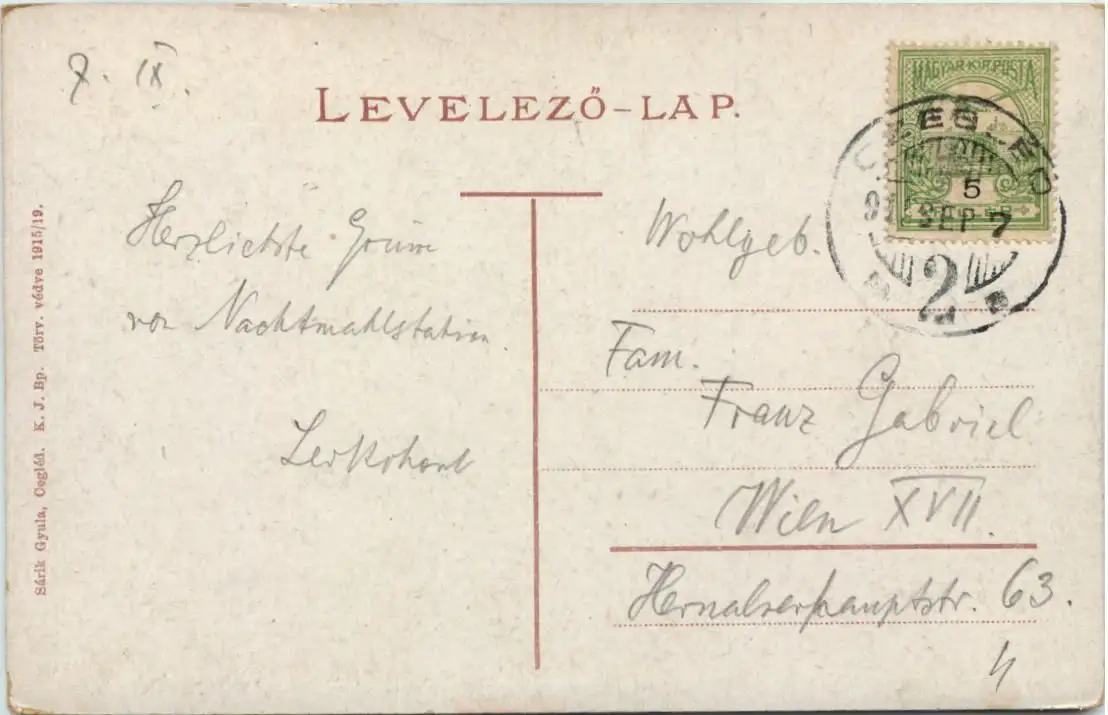 7. IX.
LEVELEZŐ-LAP.
MAGYAR KIR. POSTA
5
CZEGLÉD
SEP 7
2
Herzlichste Grüsse
von Nachtmahlstation.
Wohlgeb.
Fam.
Franz Gabriel
Wien XVII.
Hernalserhauptstr. 63.
Sárik Gyula, Cegléd. K. J. Bp. Törv. védve 1915/19.